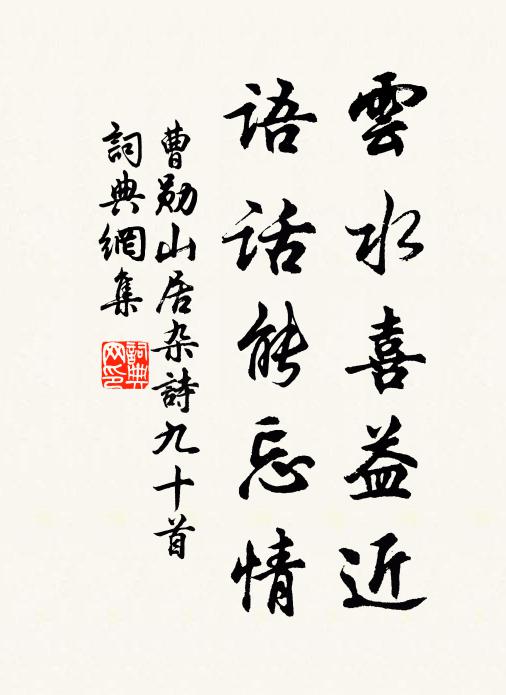 雲水喜益近
語話能忘情
曹勛山居杂詩九十首
詞典網集
詞典网印